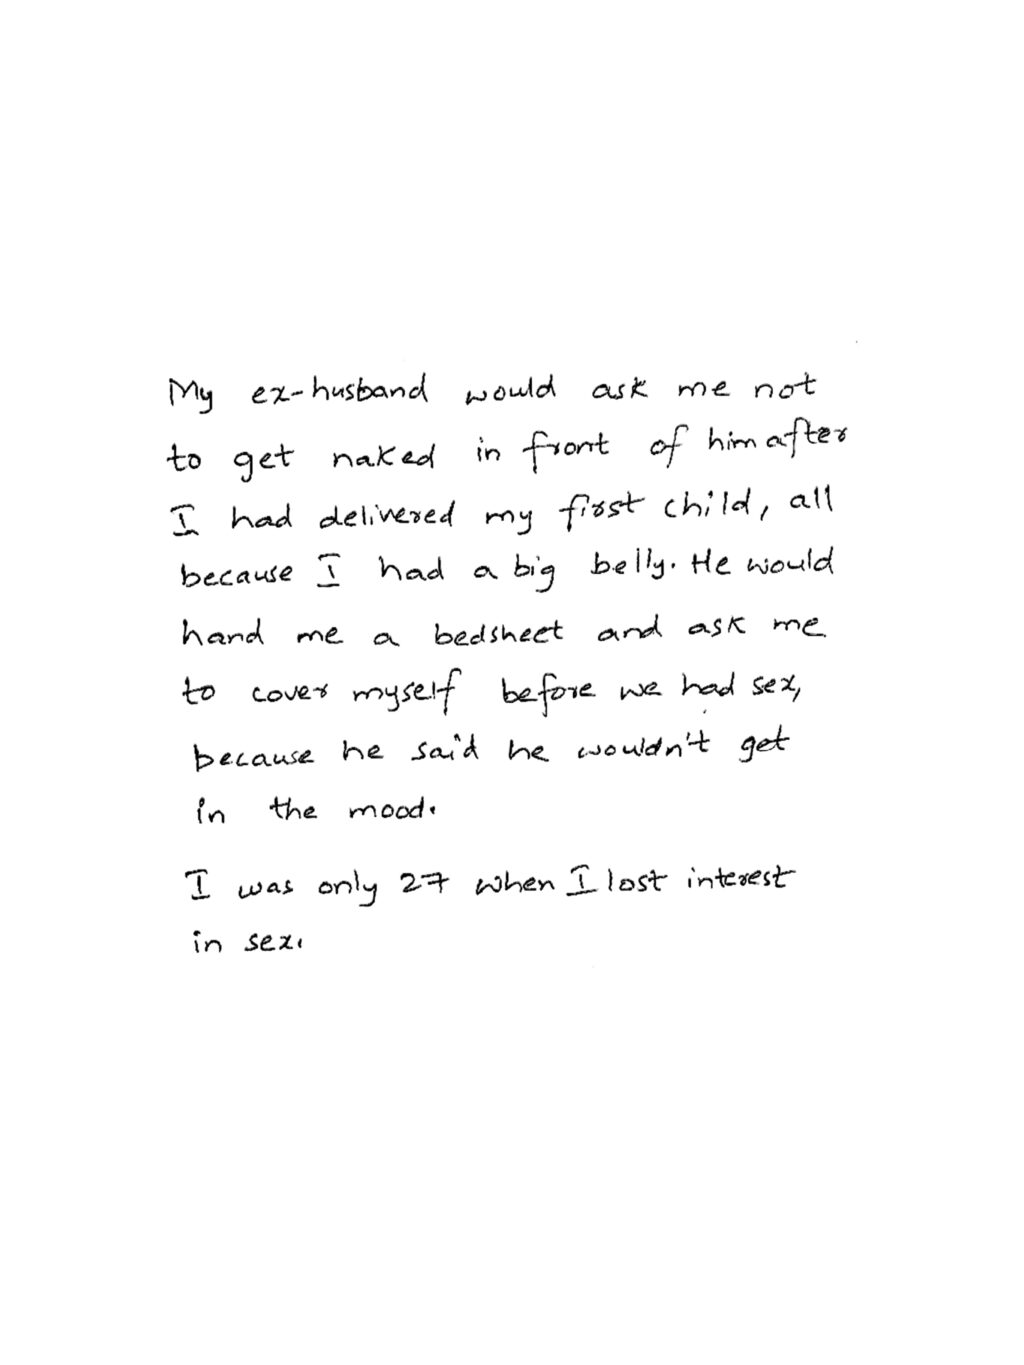 My ex-husband would ask me not
to get naked in front of him after
I had delivered my first child, all
because I had a big belly. He would
hand me a bedsheet and ask me
to cover myself before we had sex,
because he said he wouldn't get
in the mood.
I was only 27 when I lost interest
in sex.